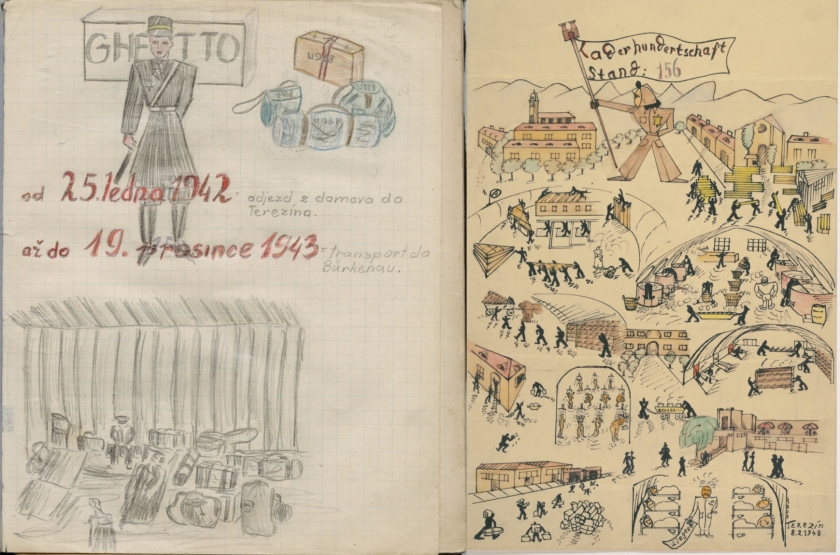 GHETTO
U948
U948
od 25. ledna 1942 odjezd z domova do
Terezína.
až do 19. prosince 1943 - transport do
Bürkenau.
Lagerhundertschaft
Stand: 156
TEREZÍN